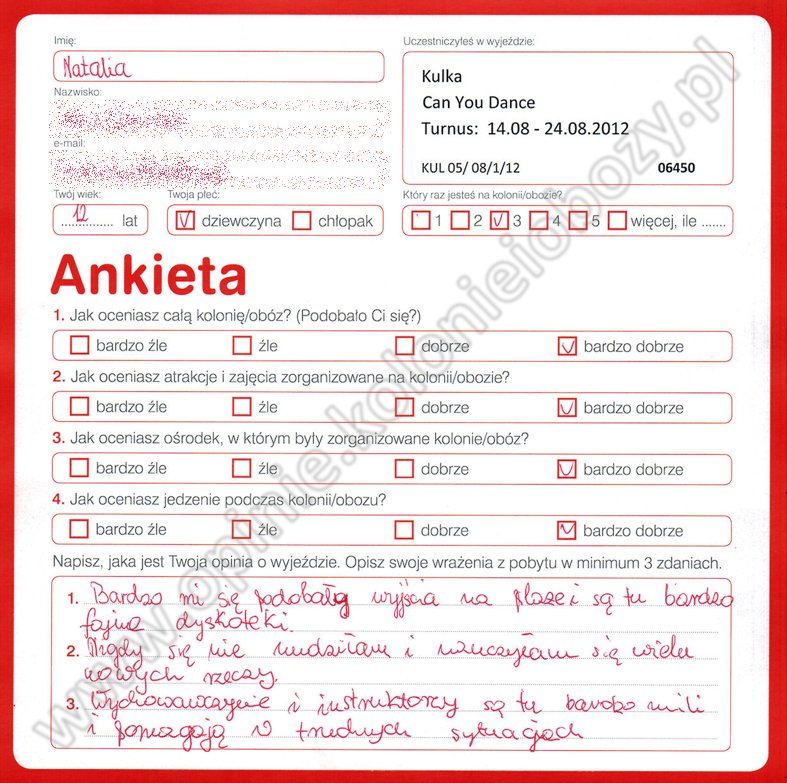 Imię:
Natalia
Nazwisko:
e-mail:
Twój wiek:
12 lat
Twoja płeć:
dziewczyna chłopak
Uczestniczyłeś w wyjeździe:
Kulka
Can You Dance
Turnus: 14.08 - 24.08.2012
KUL 05/ 08/1/12 06450
Który raz jesteś na kolonii/obozie?
1 2 3 4 5 więcej, ile .......
Ankieta
1. Jak oceniasz całą kolonię/obóz? (Podobało Ci się?)
bardzo źle źle dobrze bardzo dobrze
2. Jak oceniasz atrakcje i zajęcia zorganizowane na kolonii/obozie?
bardzo źle źle dobrze bardzo dobrze
3. Jak oceniasz ośrodek, w którym były zorganizowane kolonie/obóz?
bardzo źle źle dobrze bardzo dobrze
4. Jak oceniasz jedzenie podczas kolonii/obozu?
bardzo źle źle dobrze bardzo dobrze
Napisz, jaka jest Twoja opinia o wyjeździe. Opisz swoje wrażenia z pobytu w minimum 3 zdaniach.
1. Bardzo mi się podobały wyjścia na plaże i są tu bardzo
fajne dyskoteki.
2. Nigdy się nie nudziłam i nauczyłam się wielu
nowych rzeczy.
3. Wychowawczynie i instruktorzy są tu bardzo mili
i pomagają w trudnych sytuacjach
www.opinie.kolonieiobozy.pl